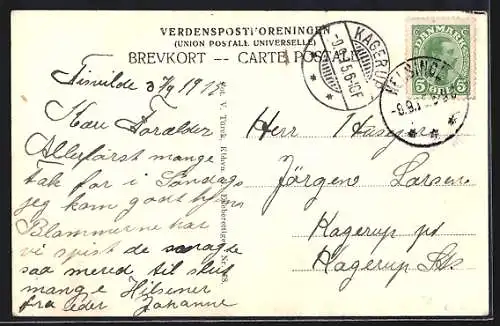 VERDENSPOSTFORENINGEN
(UNION POSTALE UNIVERSELLE)
BREVKORT -- CARTE POSTALE
KAGERUP
HELSINGE
DANMARK
5 ØRE 5
Tisvilde 3/9 19
Kære Forældre
Allerførst mange
tak for i Søndags
jeg kom godt hjem
Blommerne har
vi spist de smagte
saa mered til slut
mange Hilsener
fra eder Johanne
V. Tursk.
Herr Husejer
Jørgen Larsen
Kagerup pr
Kagerup St.